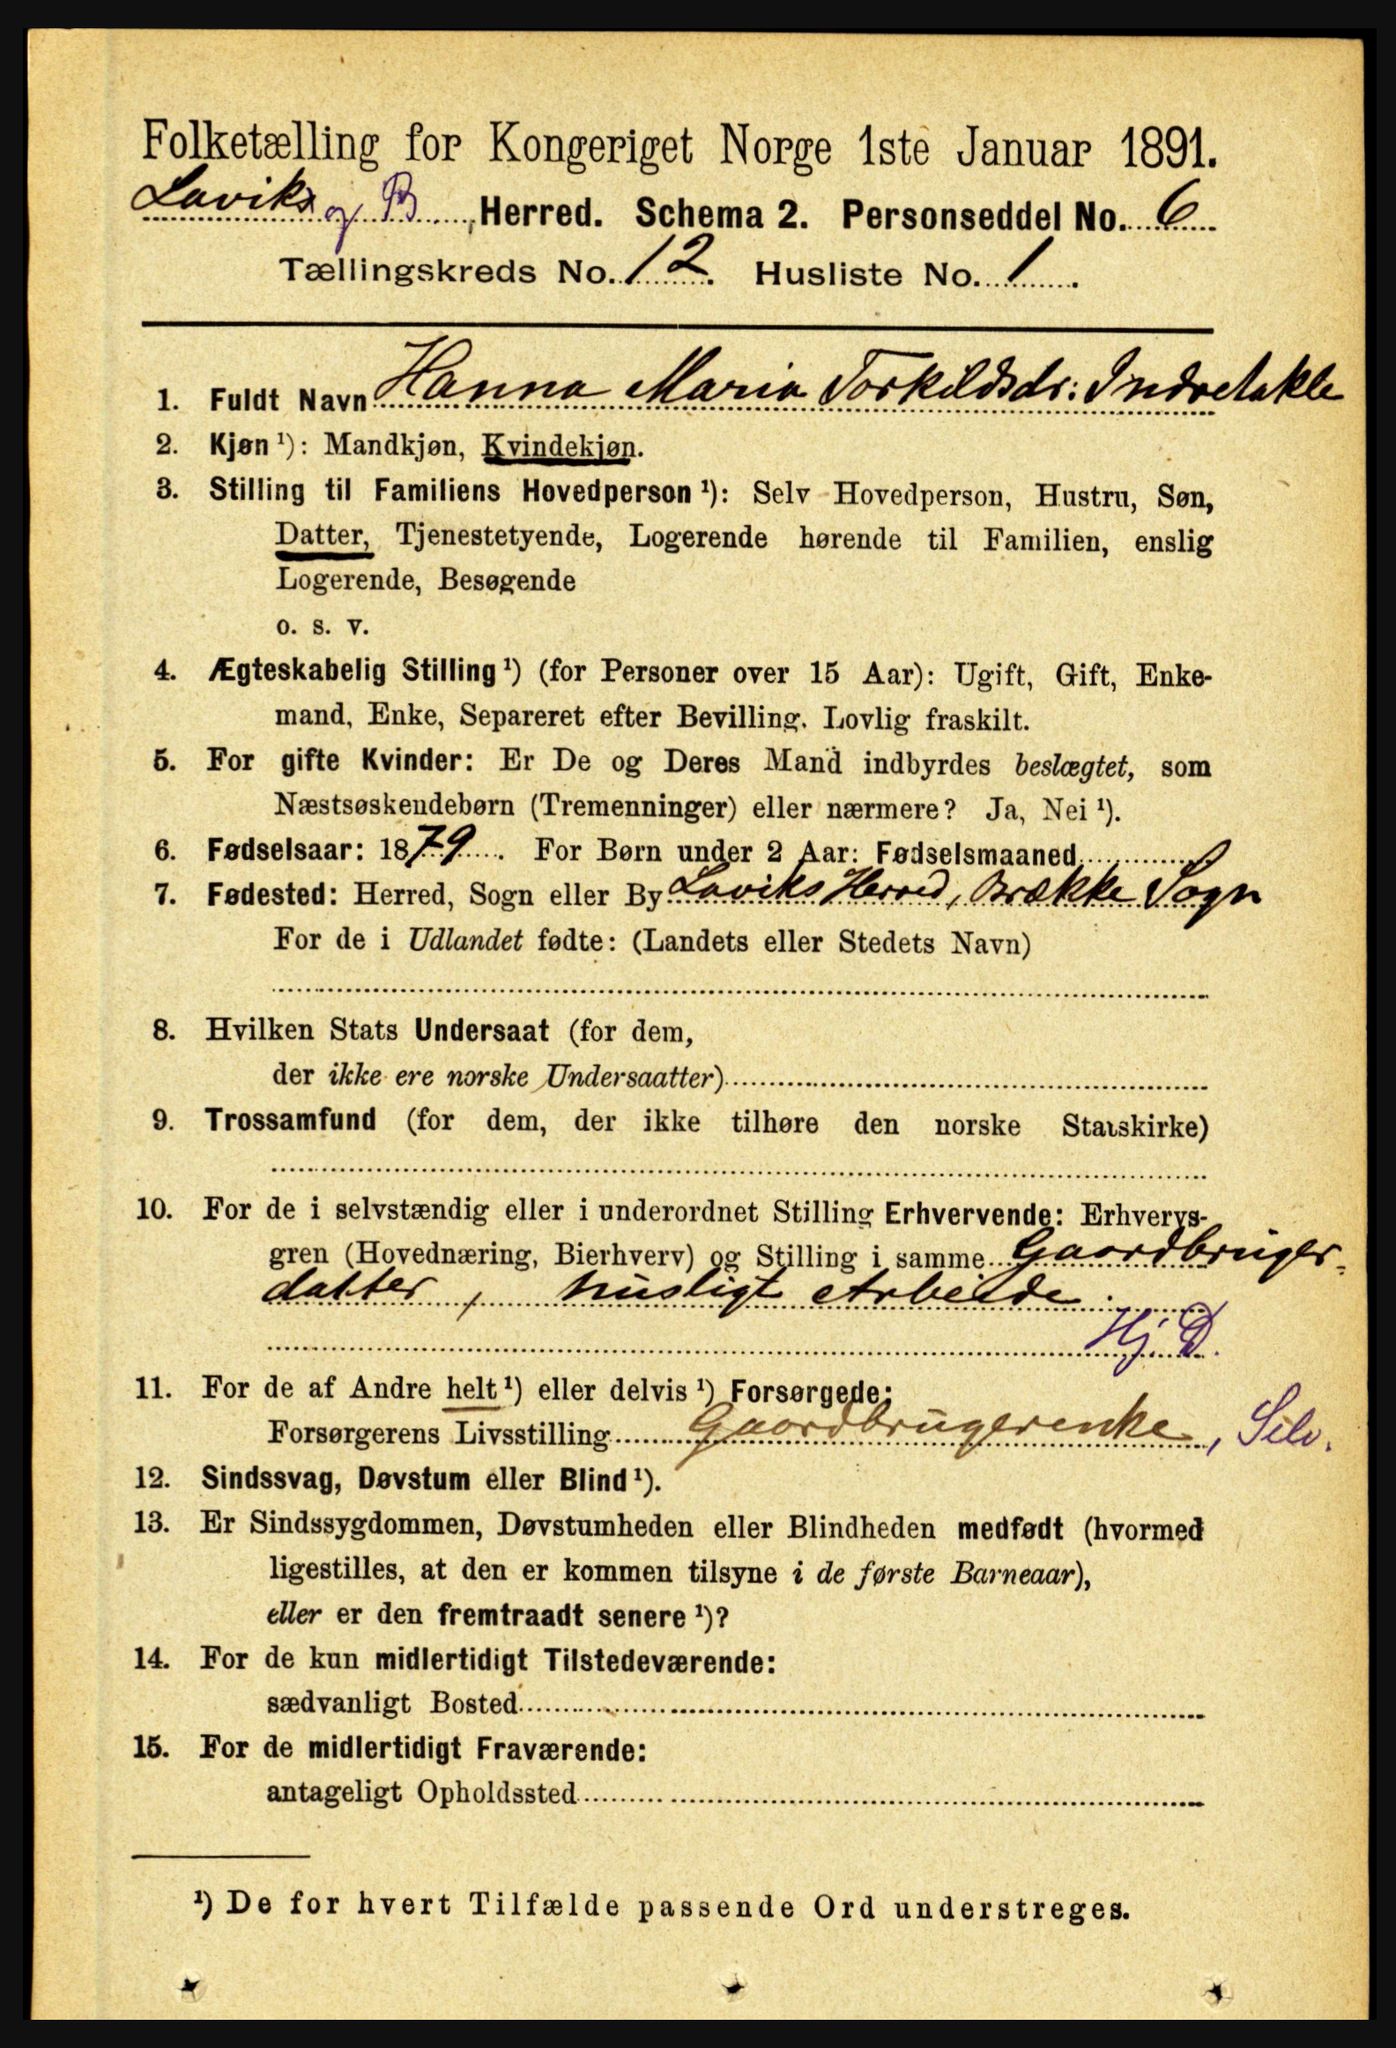 Folketælling for Kongeriget Norge 1ste Januar 1891.
Laviks og B. Herred. Schema 2. Personseddel No. 6
Tællingskreds No. 12. Husliste No. 1.
1. Fuldt Navn Hanna Maria Torkildsdr: Indretakle
2. Kjøn ¹): Mandkjøn, Kvindekjøn.
3. Stilling til Familiens Hovedperson ¹): Selv Hovedperson, Hustru, Søn,
Datter, Tjenestetyende, Logerende hørende til Familien, enslig
Logerende, Besøgende
o. s. v.
4. Ægteskabelig Stilling ¹) (for Personer over 15 Aar): Ugift, Gift, Enke-
mand, Enke, Separeret efter Bevilling. Lovlig fraskilt.
5. For gifte Kvinder: Er De og Deres Mand indbyrdes beslægtet, som
Næstsøskendebørn (Tremenninger) eller nærmere? Ja, Nei ¹).
6. Fødselsaar: 1879. For Børn under 2 Aar: Fødselsmaaned
7. Fødested: Herred, Sogn eller By Laviks Herred, Brække Sogn
For de i Udlandet fødte: (Landets eller Stedets Navn)
8. Hvilken Stats Undersaat (for dem,
der ikke ere norske Undersaatter)
9. Trossamfund (for dem, der ikke tilhøre den norske Statskirke)
10. For de i selvstændig eller i underordnet Stilling Erhvervende: Erhvervs-
gren (Hovednæring, Bierhverv) og Stilling i samme Gaardbruger-
datter, husligt Arbeide.
Hj. D.
11. For de af Andre helt ¹) eller delvis ¹) Forsørgede:
Forsørgerens Livsstilling Gaardbrugerenke, Selv.
12. Sindssvag, Døvstum eller Blind ¹).
13. Er Sindssygdommen, Døvstumheden eller Blindheden medfødt (hvormed
ligestilles, at den er kommen tilsyne i de første Barneaar),
eller er den fremtraadt senere ¹)?
14. For de kun midlertidigt Tilstedeværende:
sædvanligt Bosted
15. For de midlertidigt Fraværende:
antageligt Opholdssted
¹) De for hvert Tilfælde passende Ord understreges.